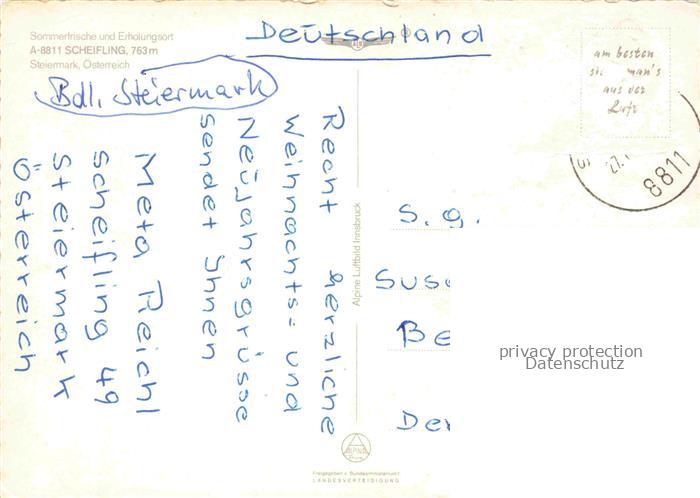 Sommerfrische und Erholungsort
A-8811 SCHEIFLING, 763 m
Steiermark, Österreich
Deutschland
Bdl. Steiermark
Recht herzliche
Weihnachts= und
Neujahrsgrüsse
sendet Ihnen
Meta Reichl
Scheifling 49
Steiermark
Österreich
Alpine Luftbild Innsbruck
am besten
man's
aus der
Luft
27.
8811
S. g.
Susa
Be
Der
privacy protection
Datenschutz
ALPINE
Freigegeben v. Bundesministerium f.
LANDESVERTEIDIGUNG